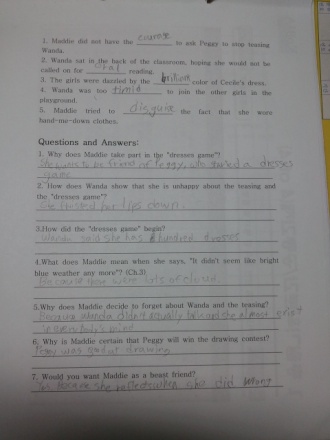 1. Maddie did not have the courage to ask Peggy to stop teasing
Wanda.
2. Wanda sat in the back of the classroom, hoping she would not be
called on for oral reading.
3. The girls were dazzled by the brilliant color of Cecile's dress.
4. Wanda was too timid to join the other girls in the
playground.
5. Maddie tried to disguise the fact that she worn
hand-me-down clothes.
Questions and Answers:
1. Why does Maddie take part in the "dresses game"?
She wants to be friend of Peggy, who started a dresses
game
2. How does Wanda show that she is unhappy about the teasing and
the "dresses game"?
She her lips down.
3.How did the "dresses game" begin?
Wanda said she has a hundred dresses
4.What does Maddie mean when she says, "It didn't seem like bright
blue weather any more"? (Ch.3)
Because there were lots of cloud.
5.Why does Maddie decide to forget about Wanda and the teasing?
Because Wanda didn't usually talk and she almost
in
6. Why is Maddie certain that Peggy will win the drawing contest?
Peggy was good at drawing
7. Would you want Maddie as a beast friend?
because she she did wrong